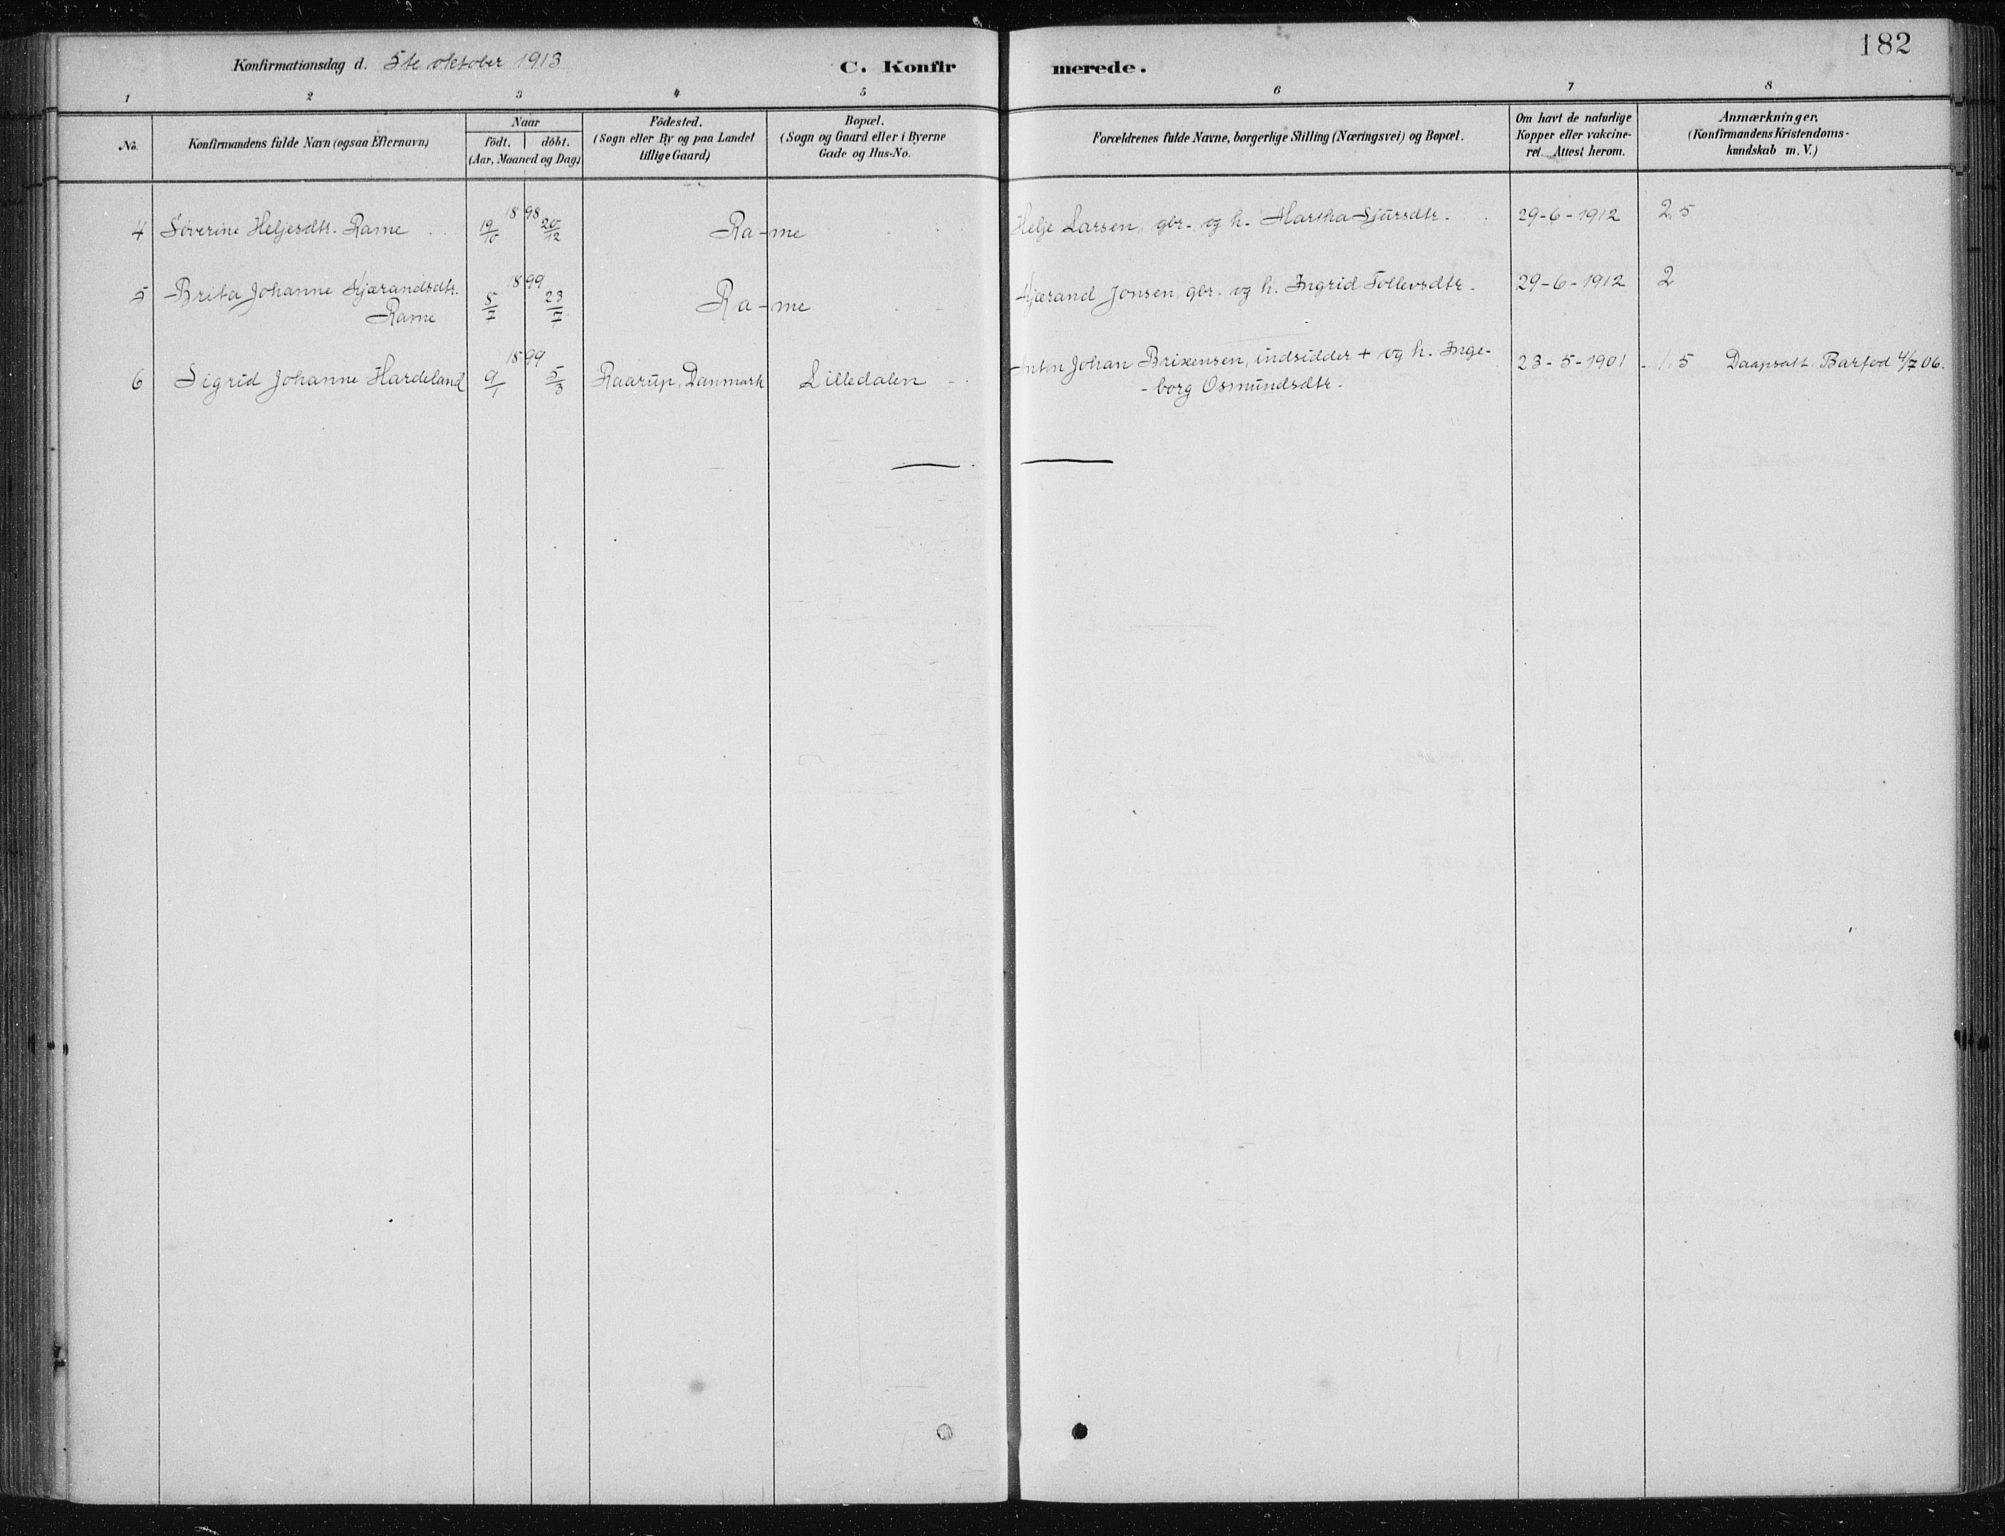 182
Konfirmationsdag d. 5te oktober 1913 C. Konfir merede.
1 2 3 4 5 6 7 8
No. Konfirmandens fulde Navn (ogsaa Efternavn) Naar födt. döbt. (Aar, Maaned og Dag) Födested. (Sogn eller By og paa Landet tillige Gaard) Bopæl. (Sogn og Gaard eller i Byerne Gade og Hus-No. Forældrenes fulde Navne, borgerlige Stilling (Næringsvei) og Bopæl. Om havt de naturlige Kopper eller vakcineret. Attest herom. Anmærkninger. (Konfirmandens Kristendomskundskab m. V.)
1898
4 Severine Heljesdtr. Rame 19/10 20/12 Ra-me Helje Larsen, gbr. og h. Martha Sjursdtr. 29-6-1912 2,5
1899
5 Brita Johanne Kjærandsdtr. 23/7 Ra-me Kjærand Jonsen gbr. og h. Ingrid Tollevsdtr. 29-6-1912 2
Rame
1899
6 Sigrid Johanne Hardeland 9/1 5/3 Raarup, Danmark Lilledalen Anton Johan Brixensen, indsidder + og h. Inge- 23-5-1901 1,5 Daapsatt. Barfod 4/7 06.
-borg Osmundsdtr.